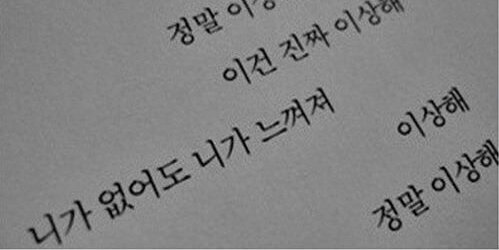 정말 이상
이건 진짜 이상해
니가 없어도 니가 느껴져
이상해
정말 이상해